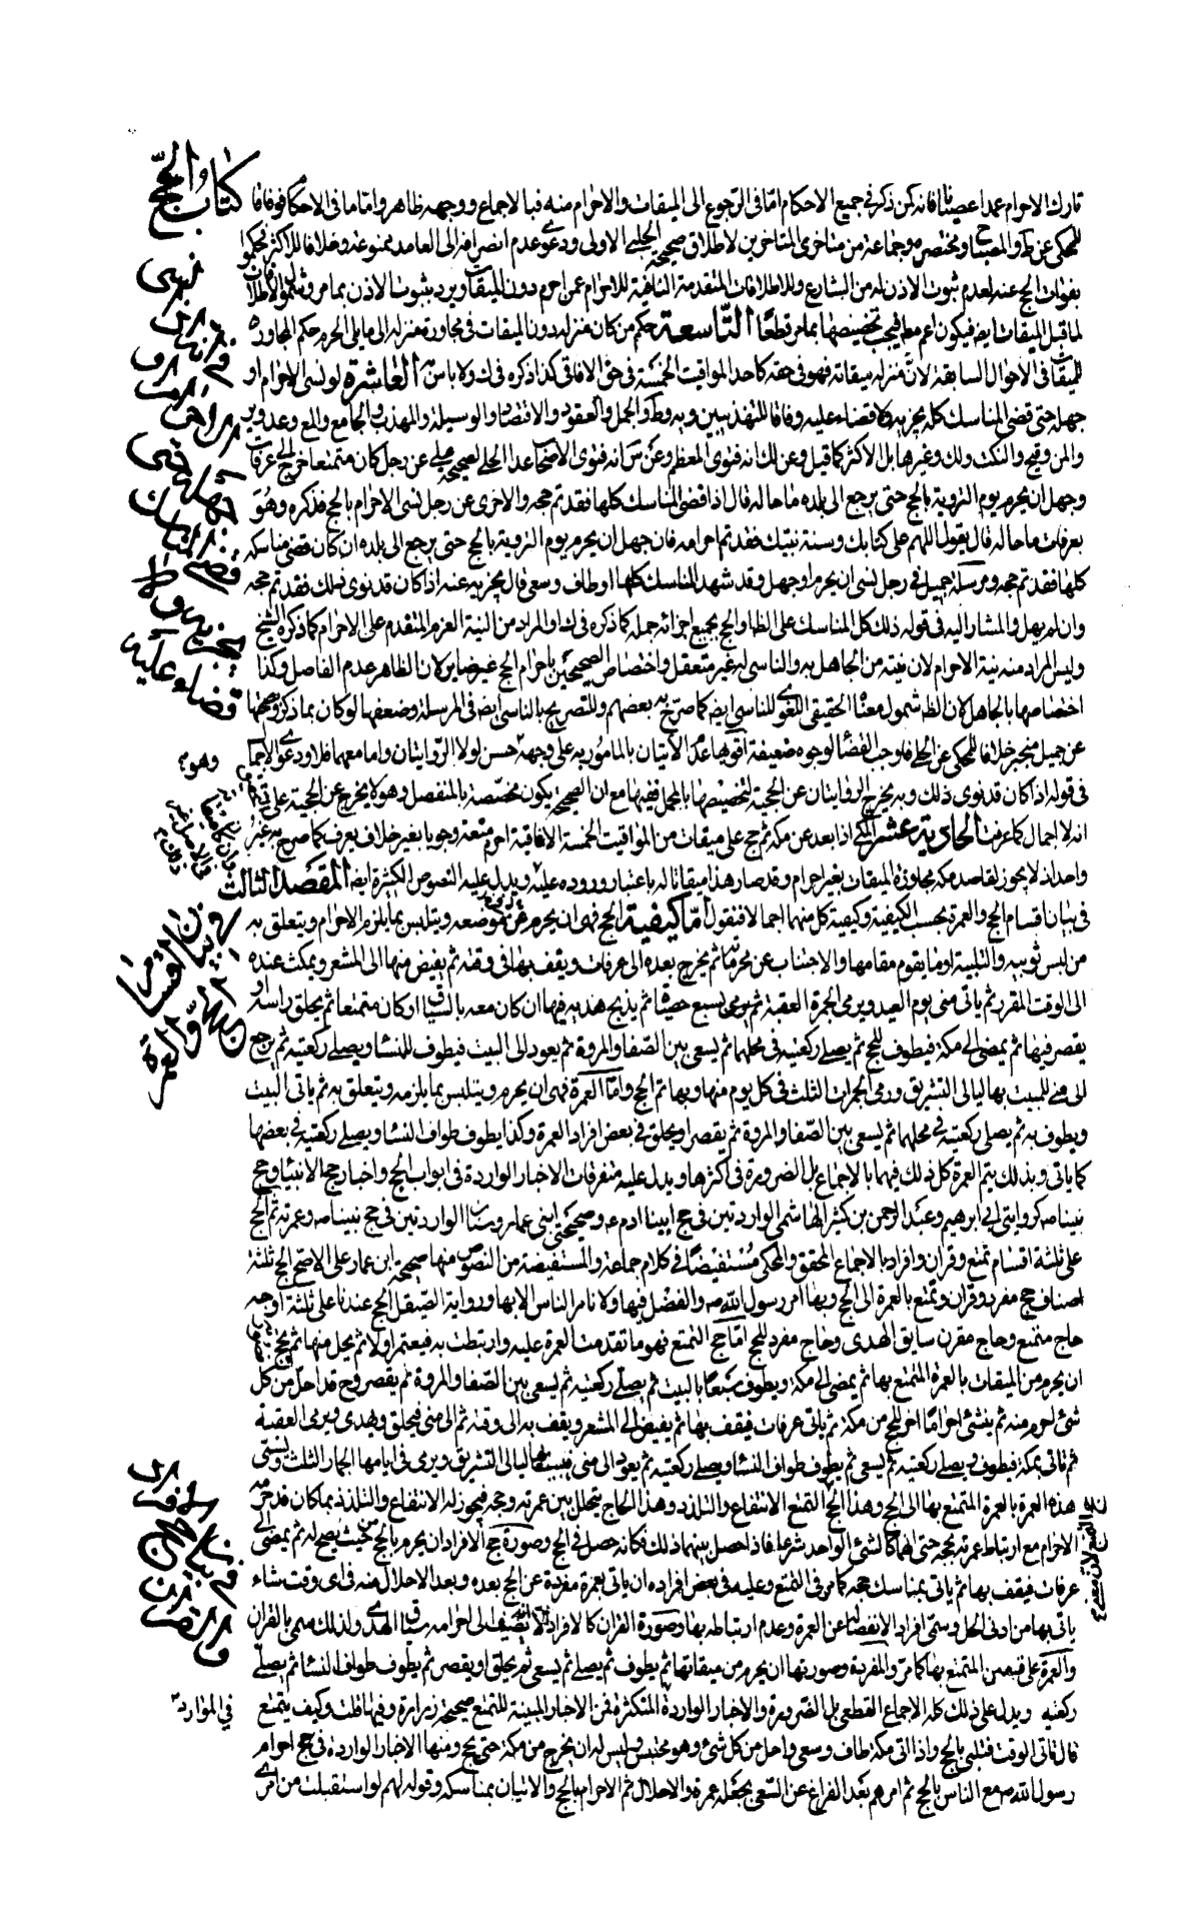 كتاب الحج
تارك الاحرام عمدا عصيانا فانه كمن ذكر في جميع الاحكام اما في الرجوع الى الميقات والاحرام منه فبالاجماع ووجهه ظاهر واما ما في الاحكام فوفاقا
للمحكي عن ط والمصباح ومختصره وجماعة من متاخرى المتاخرين لاطلاق صحيحة الحلبي الاولى ودعوى عدم انصرافه الى العامد ممنوعة وخلافا للاكثر فحكموا
بفوات الحج عنه لعدم ثبوت الاذن له من الشارع وللاطلاقات المتقدمة النافية للاحرام عمن احرم دون الميقات ويرد بثبوت الاذن بما مر
لما قبل الميقات ايضا فيكون اعم مطلقا فيجب تخصيصها بما مر قطعا التاسعة حكم من كان منزله دون الميقات في مجاوزة منزله الى ما يلى الحرم حكم المجاوزة
للميقات في الاحوال السابقة لان منزله ميقاته فهو في حقه كاحد المواقيت الخمسة في حق الافاقى كذا ذكره في ك ولا باس به العاشرة لو نسى الاحرام او
جهله حتى قضى المناسك كلها يجزيه ولا قضاء عليه وفاقا للتهذيبين ويه وط والجمل والعقود والاقتصاد والوسيلة والمهذب والجامع والمع وعد وير
والمن وقيح والنكت ولك وغيرها بل الاكثر كما قيل وعن لك انه فتوى المعظم وعن س انه فتوى الاصحاب عدا الحلى لصحيحة على عن رجل كان متمتعا خرج الى عرفات
وجهل ان يحرم يوم التروية بالحج حتى يرجع الى بلده ما حاله قال اذا قضى المناسك كلها فقد تم حجه والاخرى عن رجل نسى الاحرام بالحج فذكره وهو
بعرفات ما حاله قال يقول اللهم على كتابك وسنة نبيك فقد تم احرامه فان جهل ان يحرم يوم التروية بالحج حتى يرجع الى بلده ان كان قضى مناسكه
كلها فقد تم حجه ومرسلة جميل في رجل نسى ان يحرم او جهل وقد شهد المناسك كلها او طاف وسعى قال يجزيه عنه اذا كان قد نوى ذلك فقد تم حجه
وان لم يهل والمشار اليه في قوله ذلك كل المناسك على الظاهر والحج بجميع اجزائه جملة كما ذكره في ك والمراد من النية العزم المتقدم على الاحرام كما ذكره الشيخ
وليس المراد منه نية الاحرام لان نيته من الجاهل به والناسى له غير متعقل واختصاص الصحيحين باحرام الحج غير ضاير لان الظاهر عدم الفاصل وكذا
اختصاصها بالجاهل لان الظ شمول معناه الحقيقى اللغوى للناسى ايضا كما صرح به بعضهم وللتصريح بالناسى ايضا في المرسلة وضعفها لو كان بما ذكر وصحتها
عن جميل منجبر خلافا للمحكي عن الحلى فاوجب القضاء لوجوه ضعيفة اقويها عدم الاتيان بالمامور به على وجهه وهو حسن لولا الروايتان واما معهما فلا ودعوى الاجمال
في قوله اذا كان قد نوى ذلك وبه يخرج الروايتان عن الحجية لتخصيصها بالمجمل ففيها مع ان الصحيحة يكون مخصصة بالمنفصل وهو لا يخرج عن الحجية على
انه لا اجمال كما عرفت الحادية عشر المكى اذا بعد عن مكة ثم حج على ميقات من المواقيت الخمسة الافاقية احرم منه وجوبا بغير خلاف يعرف كما صرح به غير
واحد اذ لا يجوز لقاصد مكة مجاوزة الميقات بغير احرام وقد صار هذا ميقاتا له باعتبار وروده عليه ويدل عليه النصوص الكثيرة ايضا المقصد الثالث
في بيان اقسام الحج والعمرة بحسب الكيفية وكيفية كل منهما اجمالا فنقول اما كيفية الحج فهى ان يحرم من موضعه ويتلبس بما يلزم الاحرام ويتعلق به
من لبس ثوبيه والتلبية او ما يقوم مقامها والاجتناب عن محرماته ثم يخرج بعده الى عرفات ويقف بها في وقته ثم يفيض منها الى المشعر ويمكث عنده
الى الوقت المقرر ثم ياتى منى يوم العيد ويرمى الجمرة العقبة ثم يرمى بسبع حصيات ثم يذبح هديه فيها ان كان معه بالسياق او كان متمتعا ثم يحلق راسه او
يقصر فيها ثم يمضى الى مكة فيطوف للحج ثم يصلى ركعتيه في محلهما ثم يسعى بين الصفا والمروة ثم يعود الى البيت فيطوف للنساء ويصلى ركعتيه ثم يرجع
الى منى للمبيت بها ليالى التشريق ورمى الجمرات الثلث في كل يوم منها وبها تم الحج واما العمرة فهى ان يحرم ويتلبس بما يلزمه ويتعلق به ثم ياتى البيت
ويطوف به ثم يصلى ركعتيه في محلهما ثم يسعى بين الصفا والمروة ثم يقصر او يحلق في بعض افراد العمرة وكذا يطوف طواف النساء ويصلى ركعتيه في بعضها
كما ياتى وبذلك يتم العمرة كل ذلك فيهما بالاجماع بل الضرورة في اكثرها ويدل عليه متفرقات الاخبار الواردة في ابواب الحج واخبار حج الانبياء وحج
نبيناص كروايتى ابى ابرهيم وعبد الرحمن بن كثير الهاشمى الواردتين في حج ابينا ادم ع وصحيحتى ابنى عمار وسنان الواردتين في حج نبيناص وعمرته ثم الحج
على ثلثة اقسام تمتع وقران وافراد بالاجماع المحقق والمحكى مستفيضا في كلام جماعة والمستفيضة من النصوص منها صحيحة ابن عمار على الاصح الحج ثلثة
اصناف حج مفرد وقران وتمتع بالعمرة الى الحج وبها امر رسول الله ص والفضل فيها ولا نامر الناس الا بها ورواية الصيقل الحج عندنا على ثلثة اوجه
حاج متمتع وحاج مقرن سايق الهدى وحاج مفرد للحج اما حج التمتع فهو ما تقدمت العمرة عليه وارتبطت به فيعتمر اولا ثم يحل منها ثم يحج
ان يحرم من الميقات بالعمرة المتمتع بها ثم يمضى الى مكة ويطوف سبعا بالبيت ثم يصلى ركعتيه ثم يسعى بين الصفا والمروة ثم يقصر وح قد احل من كل
شئ احرم منه ثم ينشئ احراما اخر للحج من مكة ثم ياتى عرفات فيقف بها ثم يفيض الى المشعر ويقف به الى وقته ثم الى منى فيحلق ويهدى ويرمى العقبة
ثم ياتى مكة فيطوف ويصلى ركعتيه ثم يسعى ثم يطوف طواف النساء ويصلى ركعتيه ثم يعود الى منى فيبيت بها ليالى التشريق ويرمى في ايامها الجمار الثلث وتسمى
هذه العمرة بالعمرة المتمتع بها الى الحج وهذا الحج التمتع الانتفاع والتلذذ وهذا الحاج يتحلل بين عمرته وحجه فيجوز له الانتفاع والتلذذ بما كان قد حرمه
الاحرام مع ارتباط عمرته بحجه حتى انهما كالشئ الواحد شرعا فاذا حصل بينهما ذلك فكانه حصل في الحج وصورة حج الافراد ان يحرم بالحج من حيث يصح له ثم يمضى الى
عرفات فيقف بها ثم ياتى بمناسك حجه كما مر في التمتع وعليه في بعض افراده ان ياتى بعمرة مفردة عن الحج بعده وبعد الاحلال منه في اى وقت شاء
ياتى بها من ادنى الحل وسمى افرادا لانفصاله عن العمرة وعدم ارتباطه بها وصورة القران كالافراد الا انه يضيف الى احرامه سياق الهدى ولذلك سمى بالقران
والعمرة على قسمين المتمتع بها كما مر والمفردة وصورتها ان يحرم من ميقاتها ثم يطوف ثم يصلى ثم يسعى ثم يحلق او يقصر ثم يطوف طواف النساء ثم يصلى
ركعتيه ويدل على ذلك كله الاجماع القطعى بل الضرورة والاخبار الواردة المتكثرة فمن الاخبار المبينة للتمتع صحيحة زرارة وفيها قلت وكيف يتمتع
قال ياتى الوقت فيلبى بالحج واذا اتى مكة طاف وسعى واحل من كل شئ وهو محتبس وليس له ان يخرج من مكة حتى يحج ومنها الاخبار الواردة في حج احرام
رسول الله ص مع الناس بالحج ثم امرهم بعد الفراغ عن السعى بجعله عمرة والاحلال ثم الاحرام بالحج والاتيان بمناسكه وقوله لهم لو استقبلت من امرى
في انه لو نسى الاحرام او جهله حتى قضى المناسك يجزيه ولا قضاء عليه
في بيان اقسام الحج والعمرة
في بيان حج الافراد والقران
في الموارد